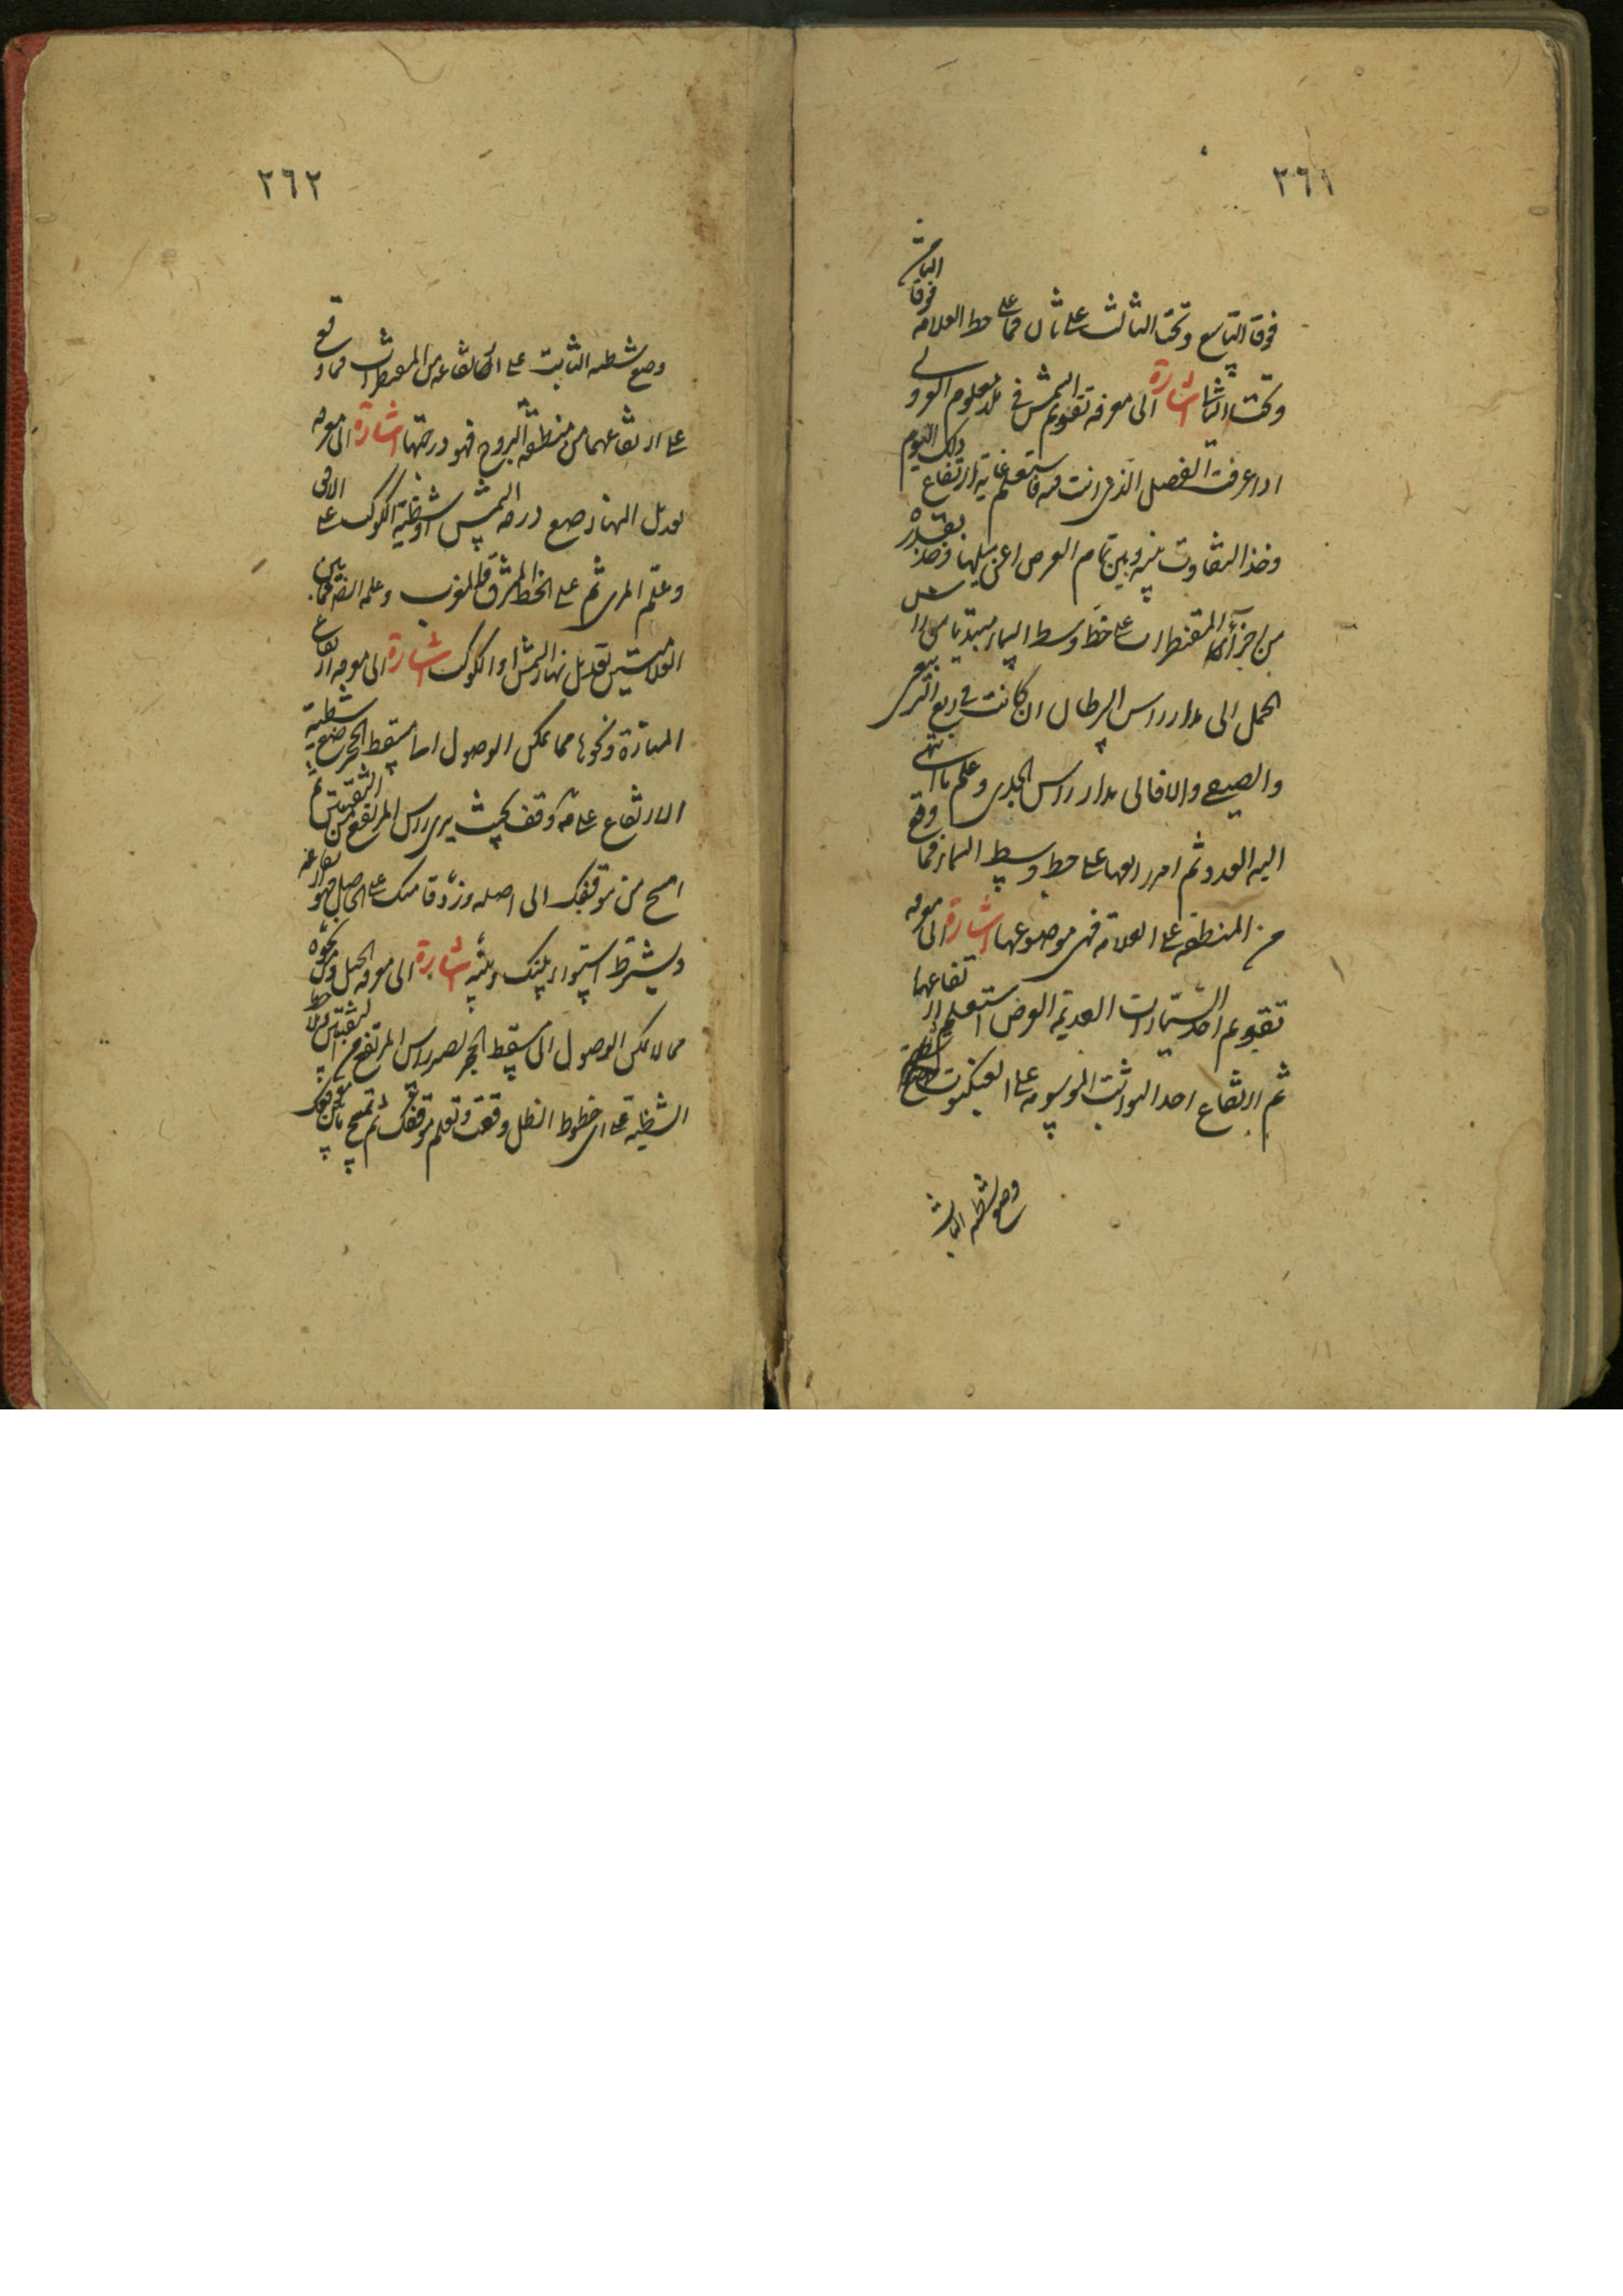 ٢٦١
فوق التاسع وتحت الثالث على ثال فما على خط العلامة فوق الثامن
وتحت الثا اشارة الى معرفة تقويم الشمس في بلد معلوم العرض
اذا عرفت الفصل الذى انت فيه فاستعلم غاية ارتفاع ذلك اليوم
وخذ التفاوت بينه وبين تمام العرض اعنى ميلها وخذ بقدره
من اجزاء المقنطرات على خط وسط السماء مبتديا من راس
الحمل الى مدار راس السرطان ان كانت في ربع الربيعى
والصيفى والا فالى مدار راس الجدى وعلم ما انتهى
اليه العدد ثم امرر ربعها على خط وسط السماء فما وقع
من المنطقة على العلامة فهى موضوعها اشارة الى معرفة
تقويم احد السيارات العديمة العرض استعلم ارتفاعها
ثم ارتفاع احد الثوابت المرسومة على العنكبوت
وضع شظية الثابت
٢٦٢
وضع شظية الثابت على ارتفاعه من المقنطرات فما وقع
على ارتفاعهما من منطقة البروج فهو درجتها اشارة الى معرفة
تعديل النهار ضع درجة الشمس او شظية الكوكب على الافق
وعلم المرى ثم على الخط المشرق والمغرب وعلمه ايضا فما بين
العلامتين تعديل نهار الشمس او الكوكب اشارة الى معرفة ارتفاع
المنارة ونحوها مما يمكن الوصول اسا مسقط الحجر ضع شظية
الارتفاع على مه وقف بحيث يرى راس المرتفع من الثقبتين ثم
امسح من موقفك الى اصله وزد قامتك على الحاصل فهو ارتفاعه
ويشترط استواء بينك وبينه اشارة الى معرفة الجبل ونحوه
مما لا يمكن الوصول الى مسقط الحجر تبصر راس المرتفع من الثقبتين وتلاحظ
الشظية على اى خطوط الظل وقعت وتعلم موقفك ثم تمسح